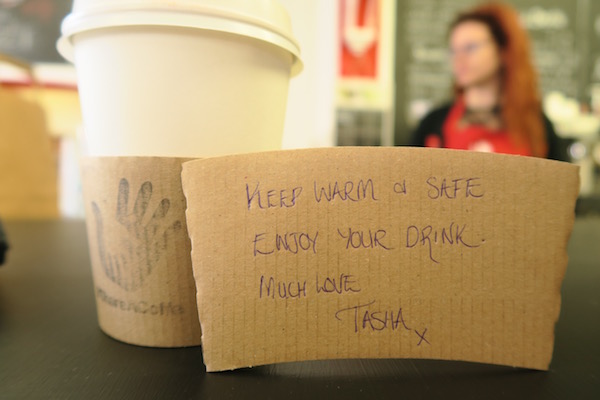 KEEP WARM & SAFE
ENJOY YOUR DRINK.
MUCH LOVE
TASHA x